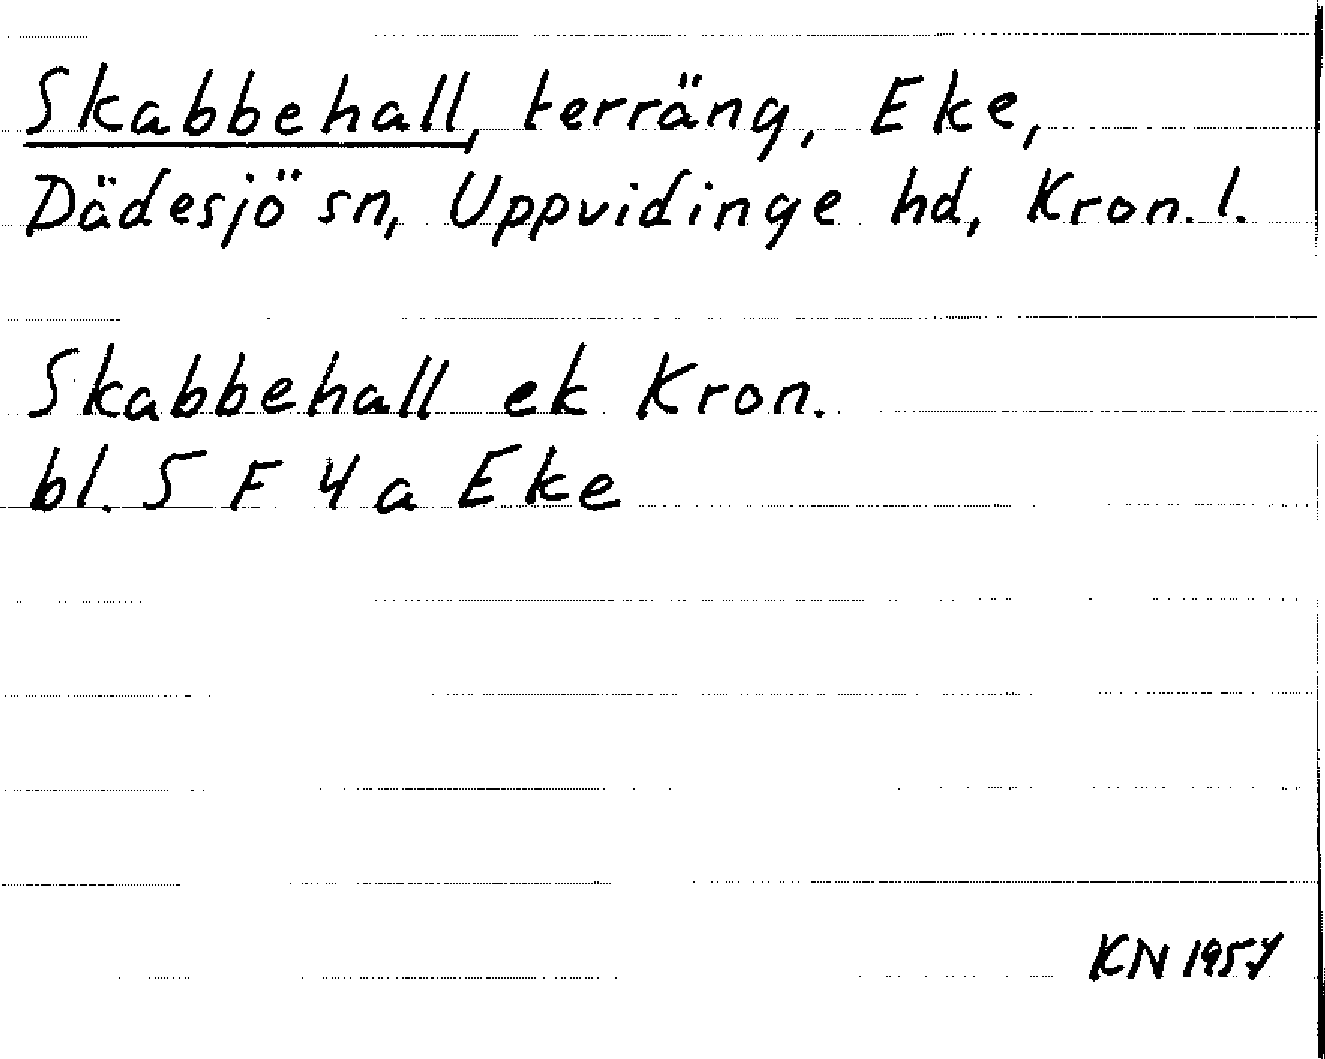 Skabbehall, terräng, Eke,
Dädesjö sn, Uppvidinge hd, Kron. l.
Skabbehall ek Kron.
bl. 5 F 4 a Eke
KN 1957